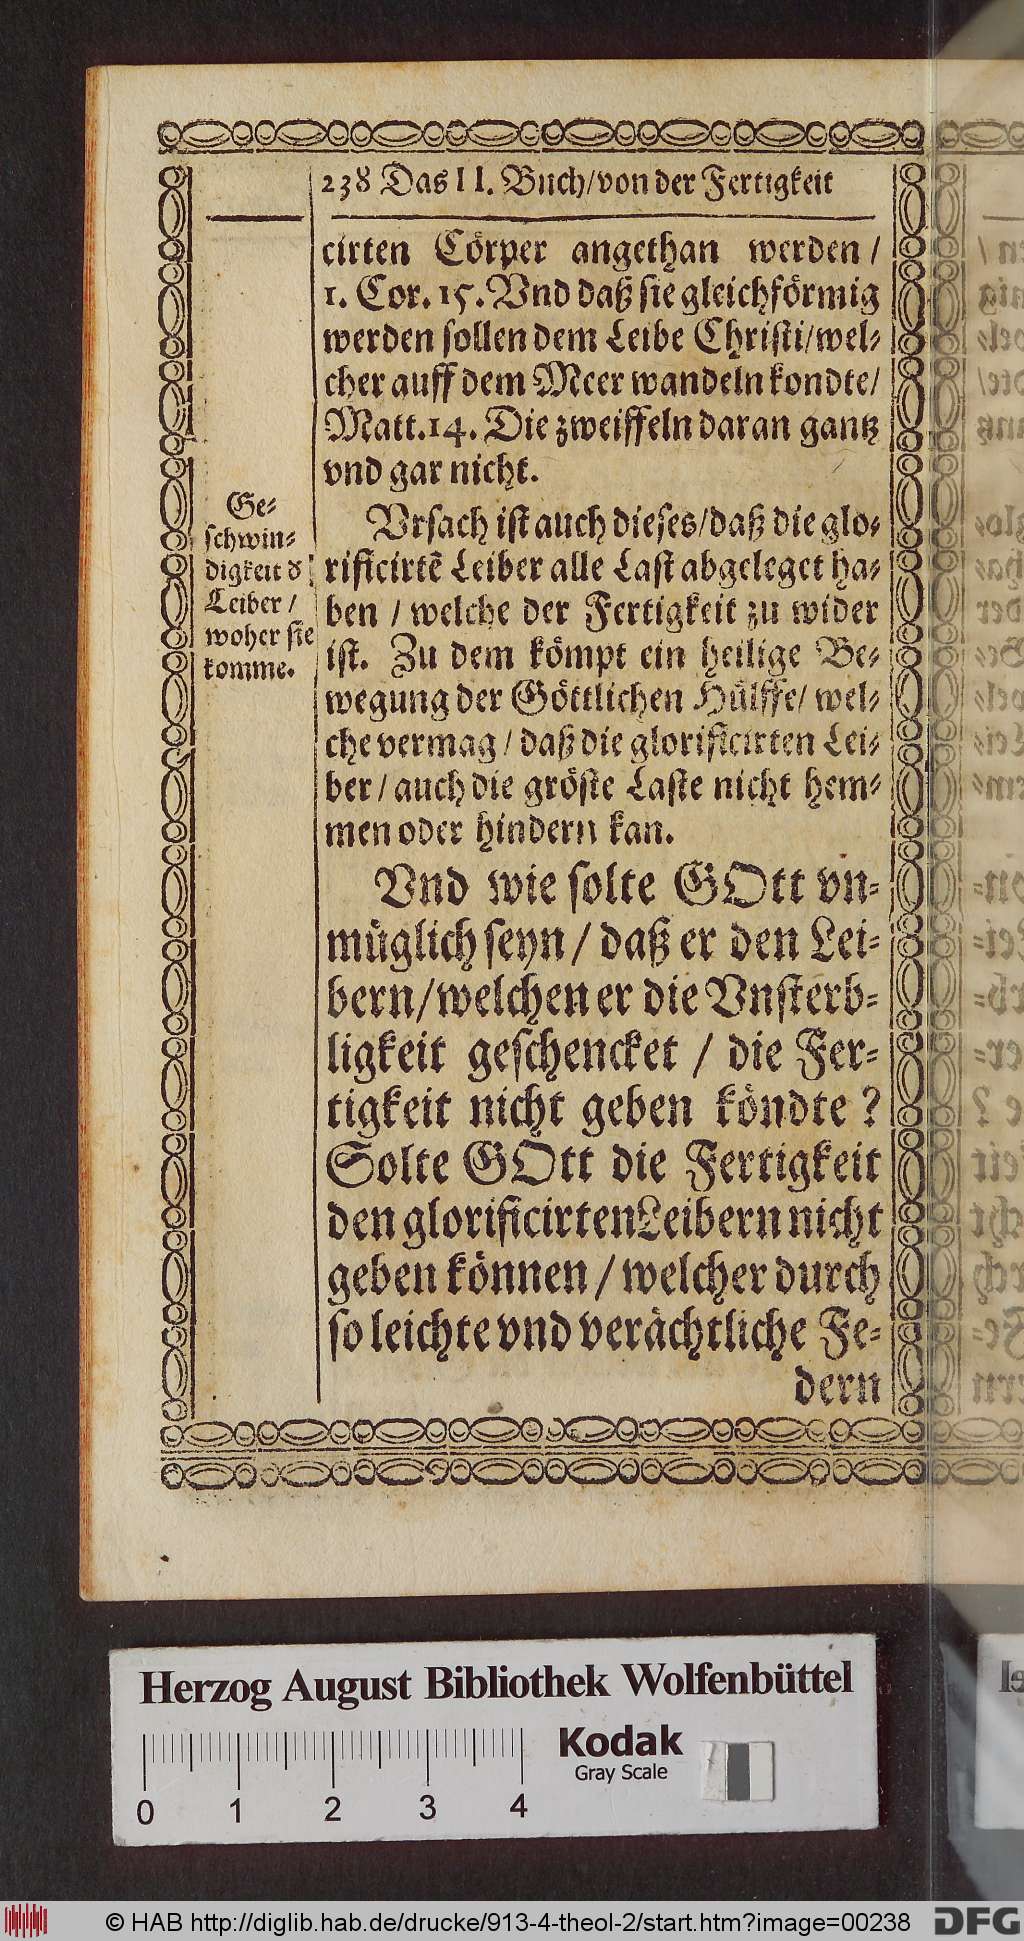 238 Das II. Buch/von der Fertigkeit
cirten Cörper angethan werden /
1. Cor. 15. Vnd daß sie gleichförmig
werden sollen dem Leibe Christi/wel⸗
cher auff dem Meer wandeln kondte/
Matt. 14. Die zweiffeln daran gantz
vnd gar nicht.
Ge⸗
schwin⸗
digkeit d
Leiber /
woher sie
komme.
Vrsach ist auch dieses/daß die glo⸗
rificirtē Leiber alle Last abgeleget ha⸗
ben / welche der Fertigkeit zu wider
ist. Zu dem kömpt ein heilige Be⸗
wegung der Göttlichen Hülffe/ wel⸗
che vermag / daß die glorificirten Lei⸗
ber / auch die gröste Laste nicht hem⸗
men oder hindern kan.
Vnd wie solte GOtt vn⸗
müglich seyn / daß er den Lei⸗
bern/welchen er die Vnsterb⸗
ligkeit geschencket / die Fer⸗
tigkeit nicht geben köndte ?
Solte GOtt die Fertigkeit
den glorificirten Leibern nicht
geben können / welcher durch
so leichte vnd verächtliche Fe⸗
dern
Herzog August Bibliothek Wolfenbüttel
Kodak
Gray Scale
0 1 2 3 4
© HAB http://diglib.hab.de/drucke/913-4-theol-2/start.htm?image=00238
DFG